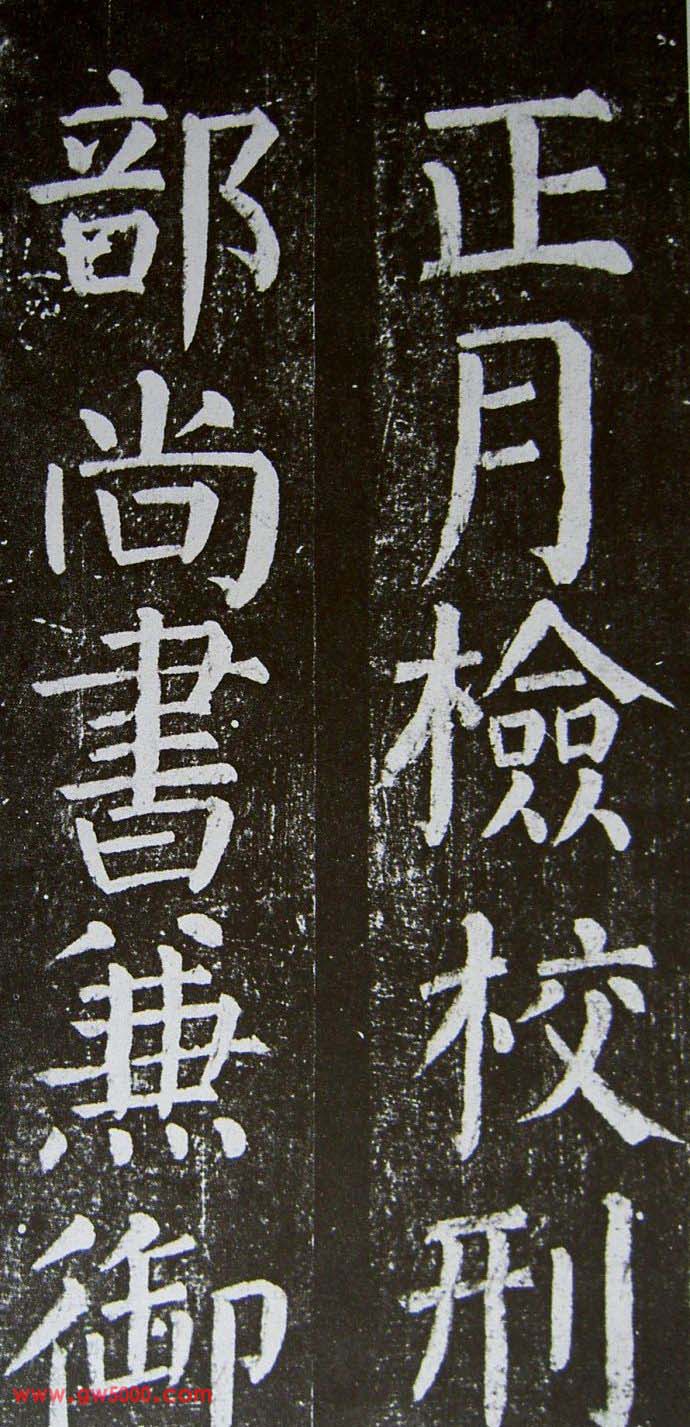 正月檢校刑
部尚書兼御
www.gw5000.com